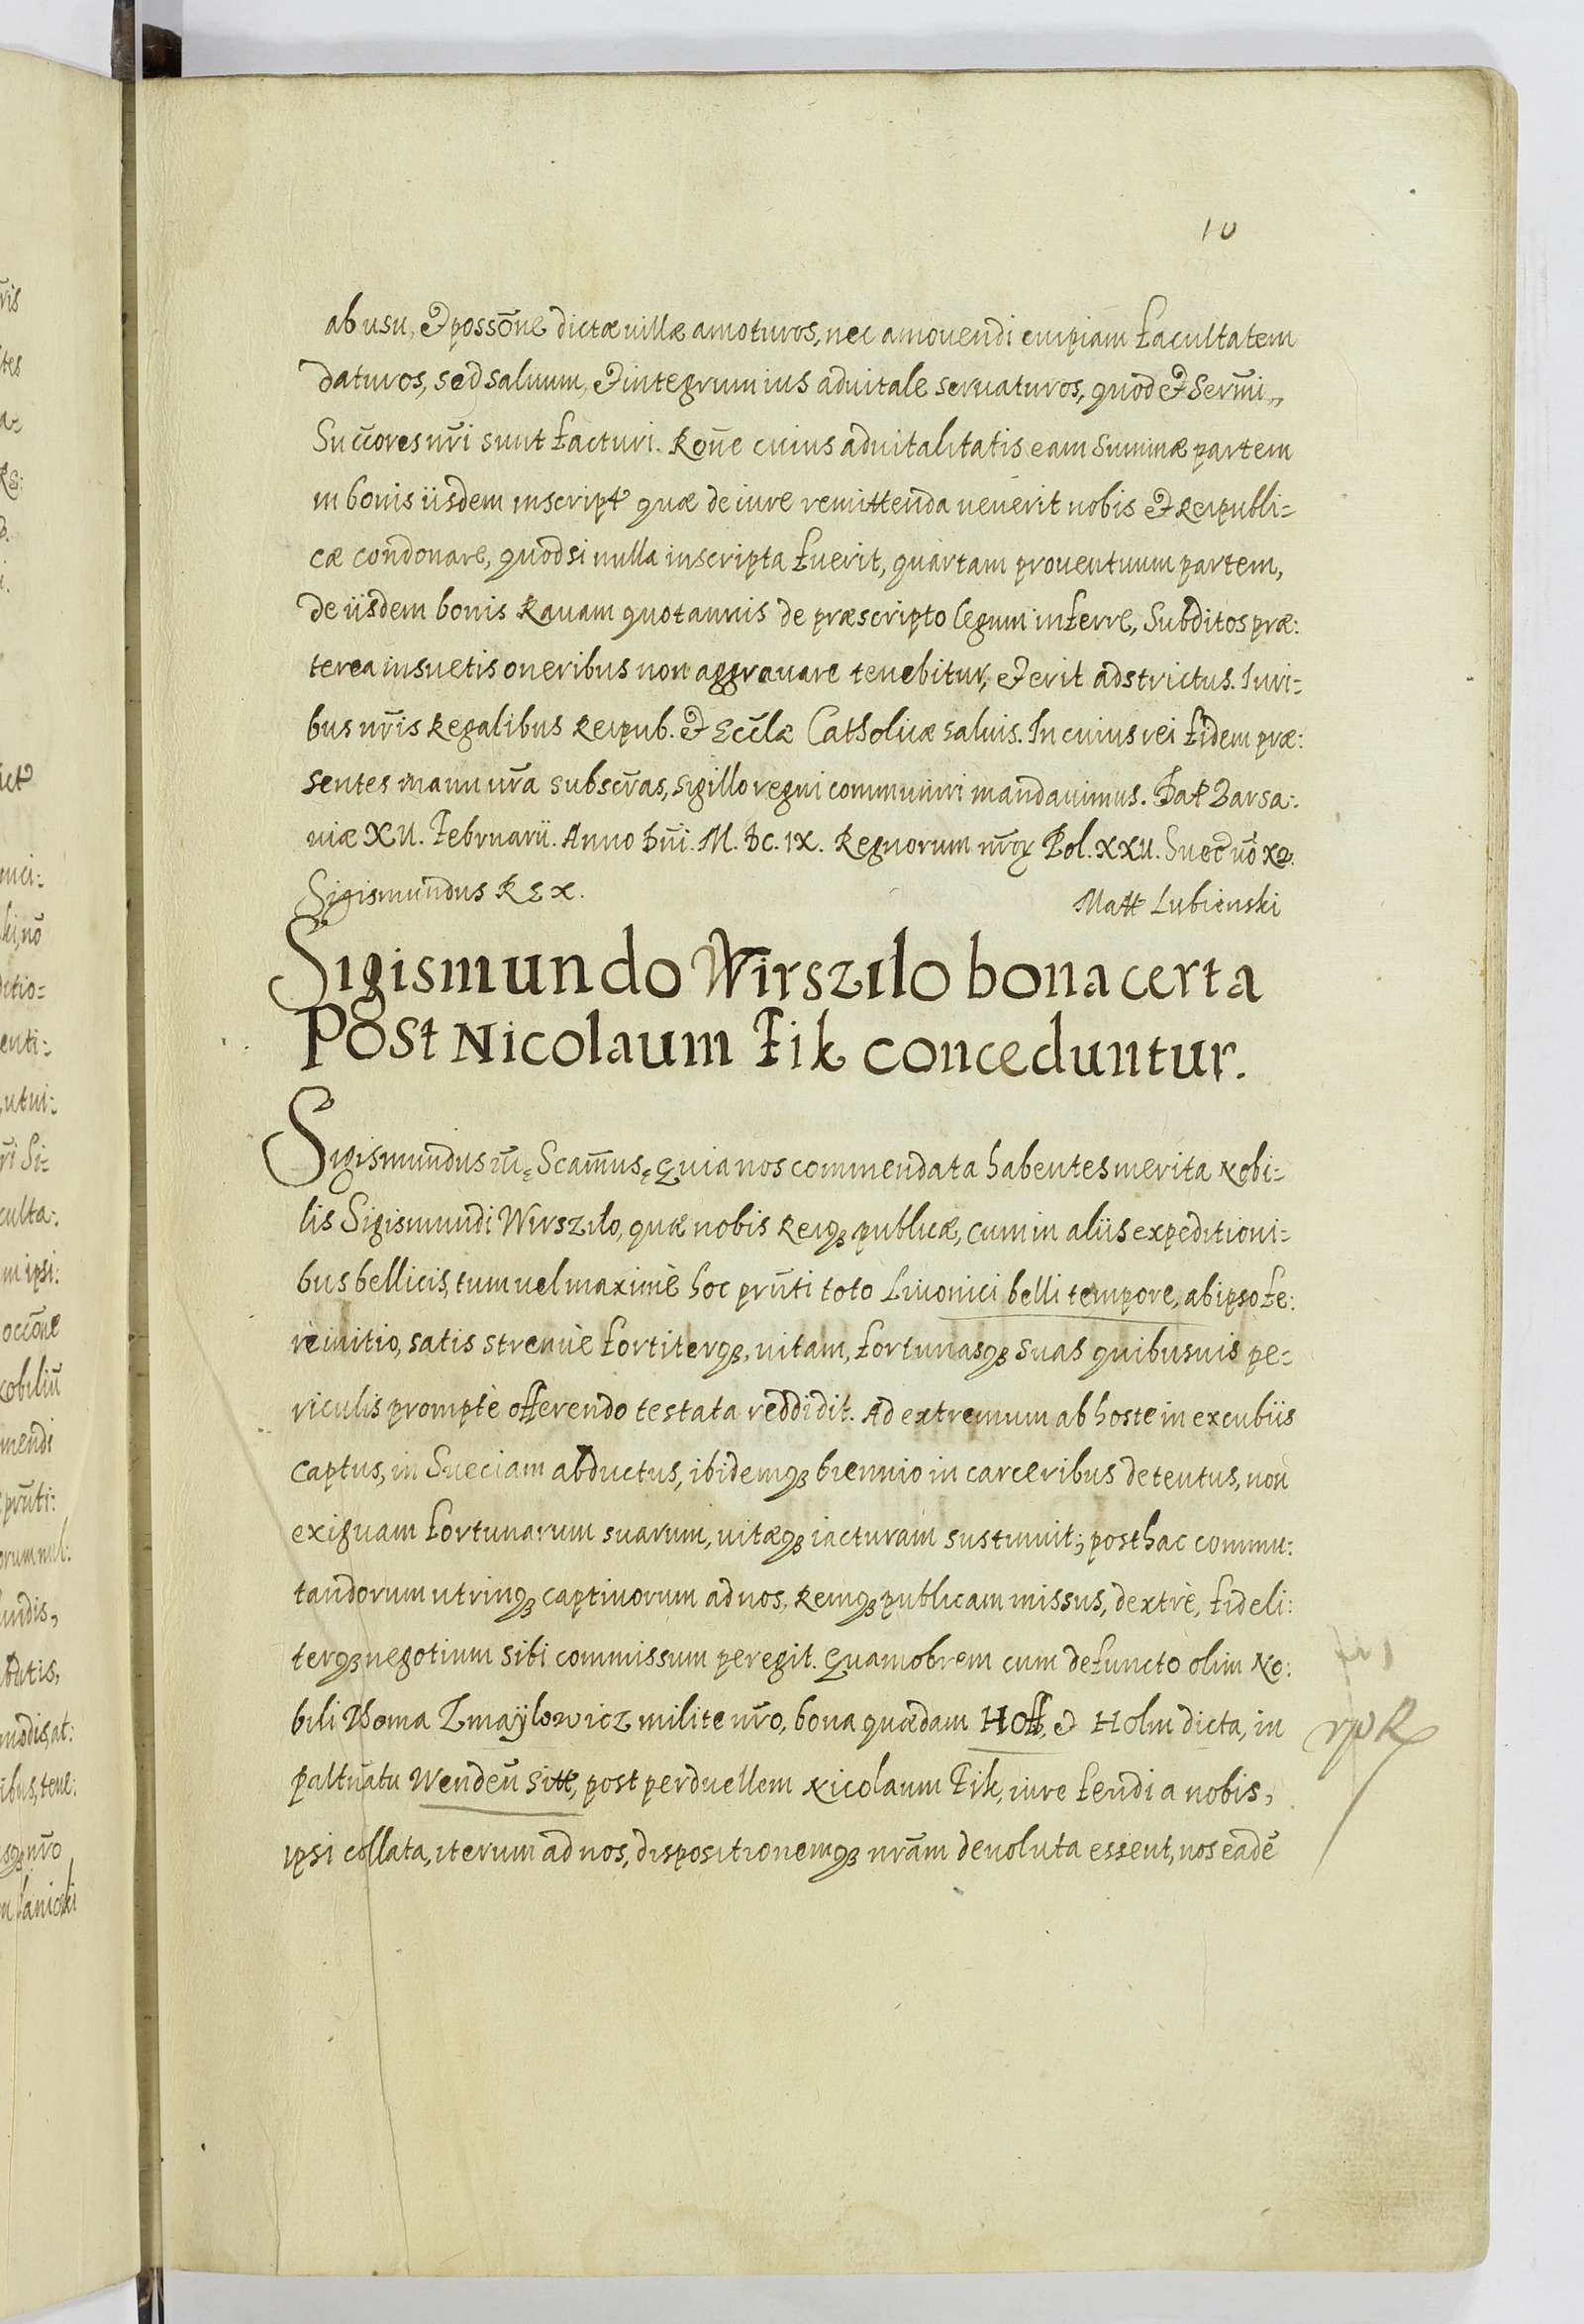 10
ab usu, et possōne dictæ uillæ amoturos, nec amouendi cuipiam facultatem
daturos, sed saluum, et integrum ius aduitale seruaturos, quod et Serm̄i„
Succ̄ores nr̄i sunt facturi. Ron̄e cuius aduitalitatis eam summæ partem
in bonis iisdem inscript quæ de iure remittenda uenerit nobis et Reipubli=
cæ condonare, quod si nulla inscripta fuerit, quartam prouentuum partem,
de iisdem bonis Rauam quotannis de præscripto legum inferre, Subditos præ:
terea insuetis oneribus non aggrauare tenebitur, et erit adstrictus. Iuri=
bus nr̄is Regalibus Reipub. et Eccl̄æ Catholicæ saluis. In cuius rei fidem præ:
sentes manu nr̄a subscr̄as, sigillo regni communiri mandauimus. Dat Varsa:
uiæ XV. Februarii. Anno Dn̄i. M. DC. IX. Regnorum nr̄oꝝ Pol. XXII. Suec uō XV.
Sigismundus REX.
Matt Lubienski
Sigismundo Wirszilo bona certa
Post Nicolaum Fik conceduntur.
Sigismundus m̄ę Scam̄us, Quia nos commendata habentes merita Nobi=
lis Sigismundi Wirszilo, quæ nobis Reiqꝫ publicæ, cum in aliis expeditioni=
bus bellicis, tum uel maximè hoc prn̄ti toto Liuonici belli tempore, ab ipso fe:
rè initio, satis strenuè fortiterqꝫ, uitam, fortunasqꝫ suas quibusuis pe=
riculis promptè offerendo testata reddidit. Ad extremum ab hoste in excubiis
captus, in Sueciam abductus, ibidemqꝫ biennio in carceribus detentus, non
exiguam fortunarum suarum, uitæqꝫ iacturam sustinuit; posthac commu:
tandorum utrinqꝫ captiuorum ad nos, Remqꝫ publicam missus, dextrè, fideli:
terqꝫ negotium sibi commissum peregit. Quamobrem cum defuncto olim No:
bili Thoma Zmaÿlowicz milite nr̄o, bona quædam Hoff, et Holm dicta, in
paltn̄atu Wendeñ Sitt, post perduellem Nicolaum Fik, iure feudi a nobis,
ipsi collata, iterum ad nos, dispositionemqꝫ nr̄am deuoluta essent, nos eadē